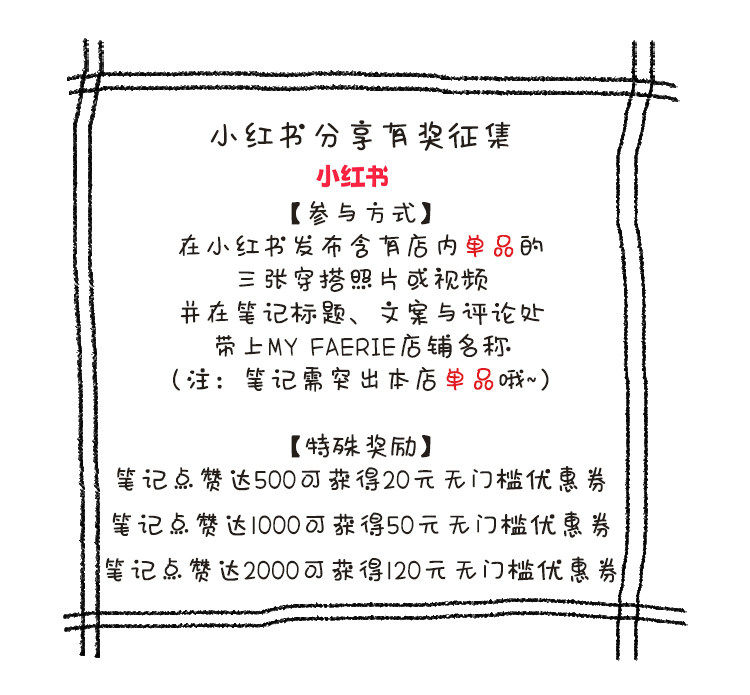 小红书分享有奖征集
小红书
【参与方式】
在小红书发布含有店内单品的
三张穿搭照片或视频
并在笔记标题、文案与评论处
带上MY FAERIE店铺名称
(注：笔记需突出本店单品哦~)
【特殊奖励】
笔记点赞达500可获得20元无门槛优惠券
笔记点赞达1000可获得50元无门槛优惠券
笔记点赞达2000可获得120元无门槛优惠券